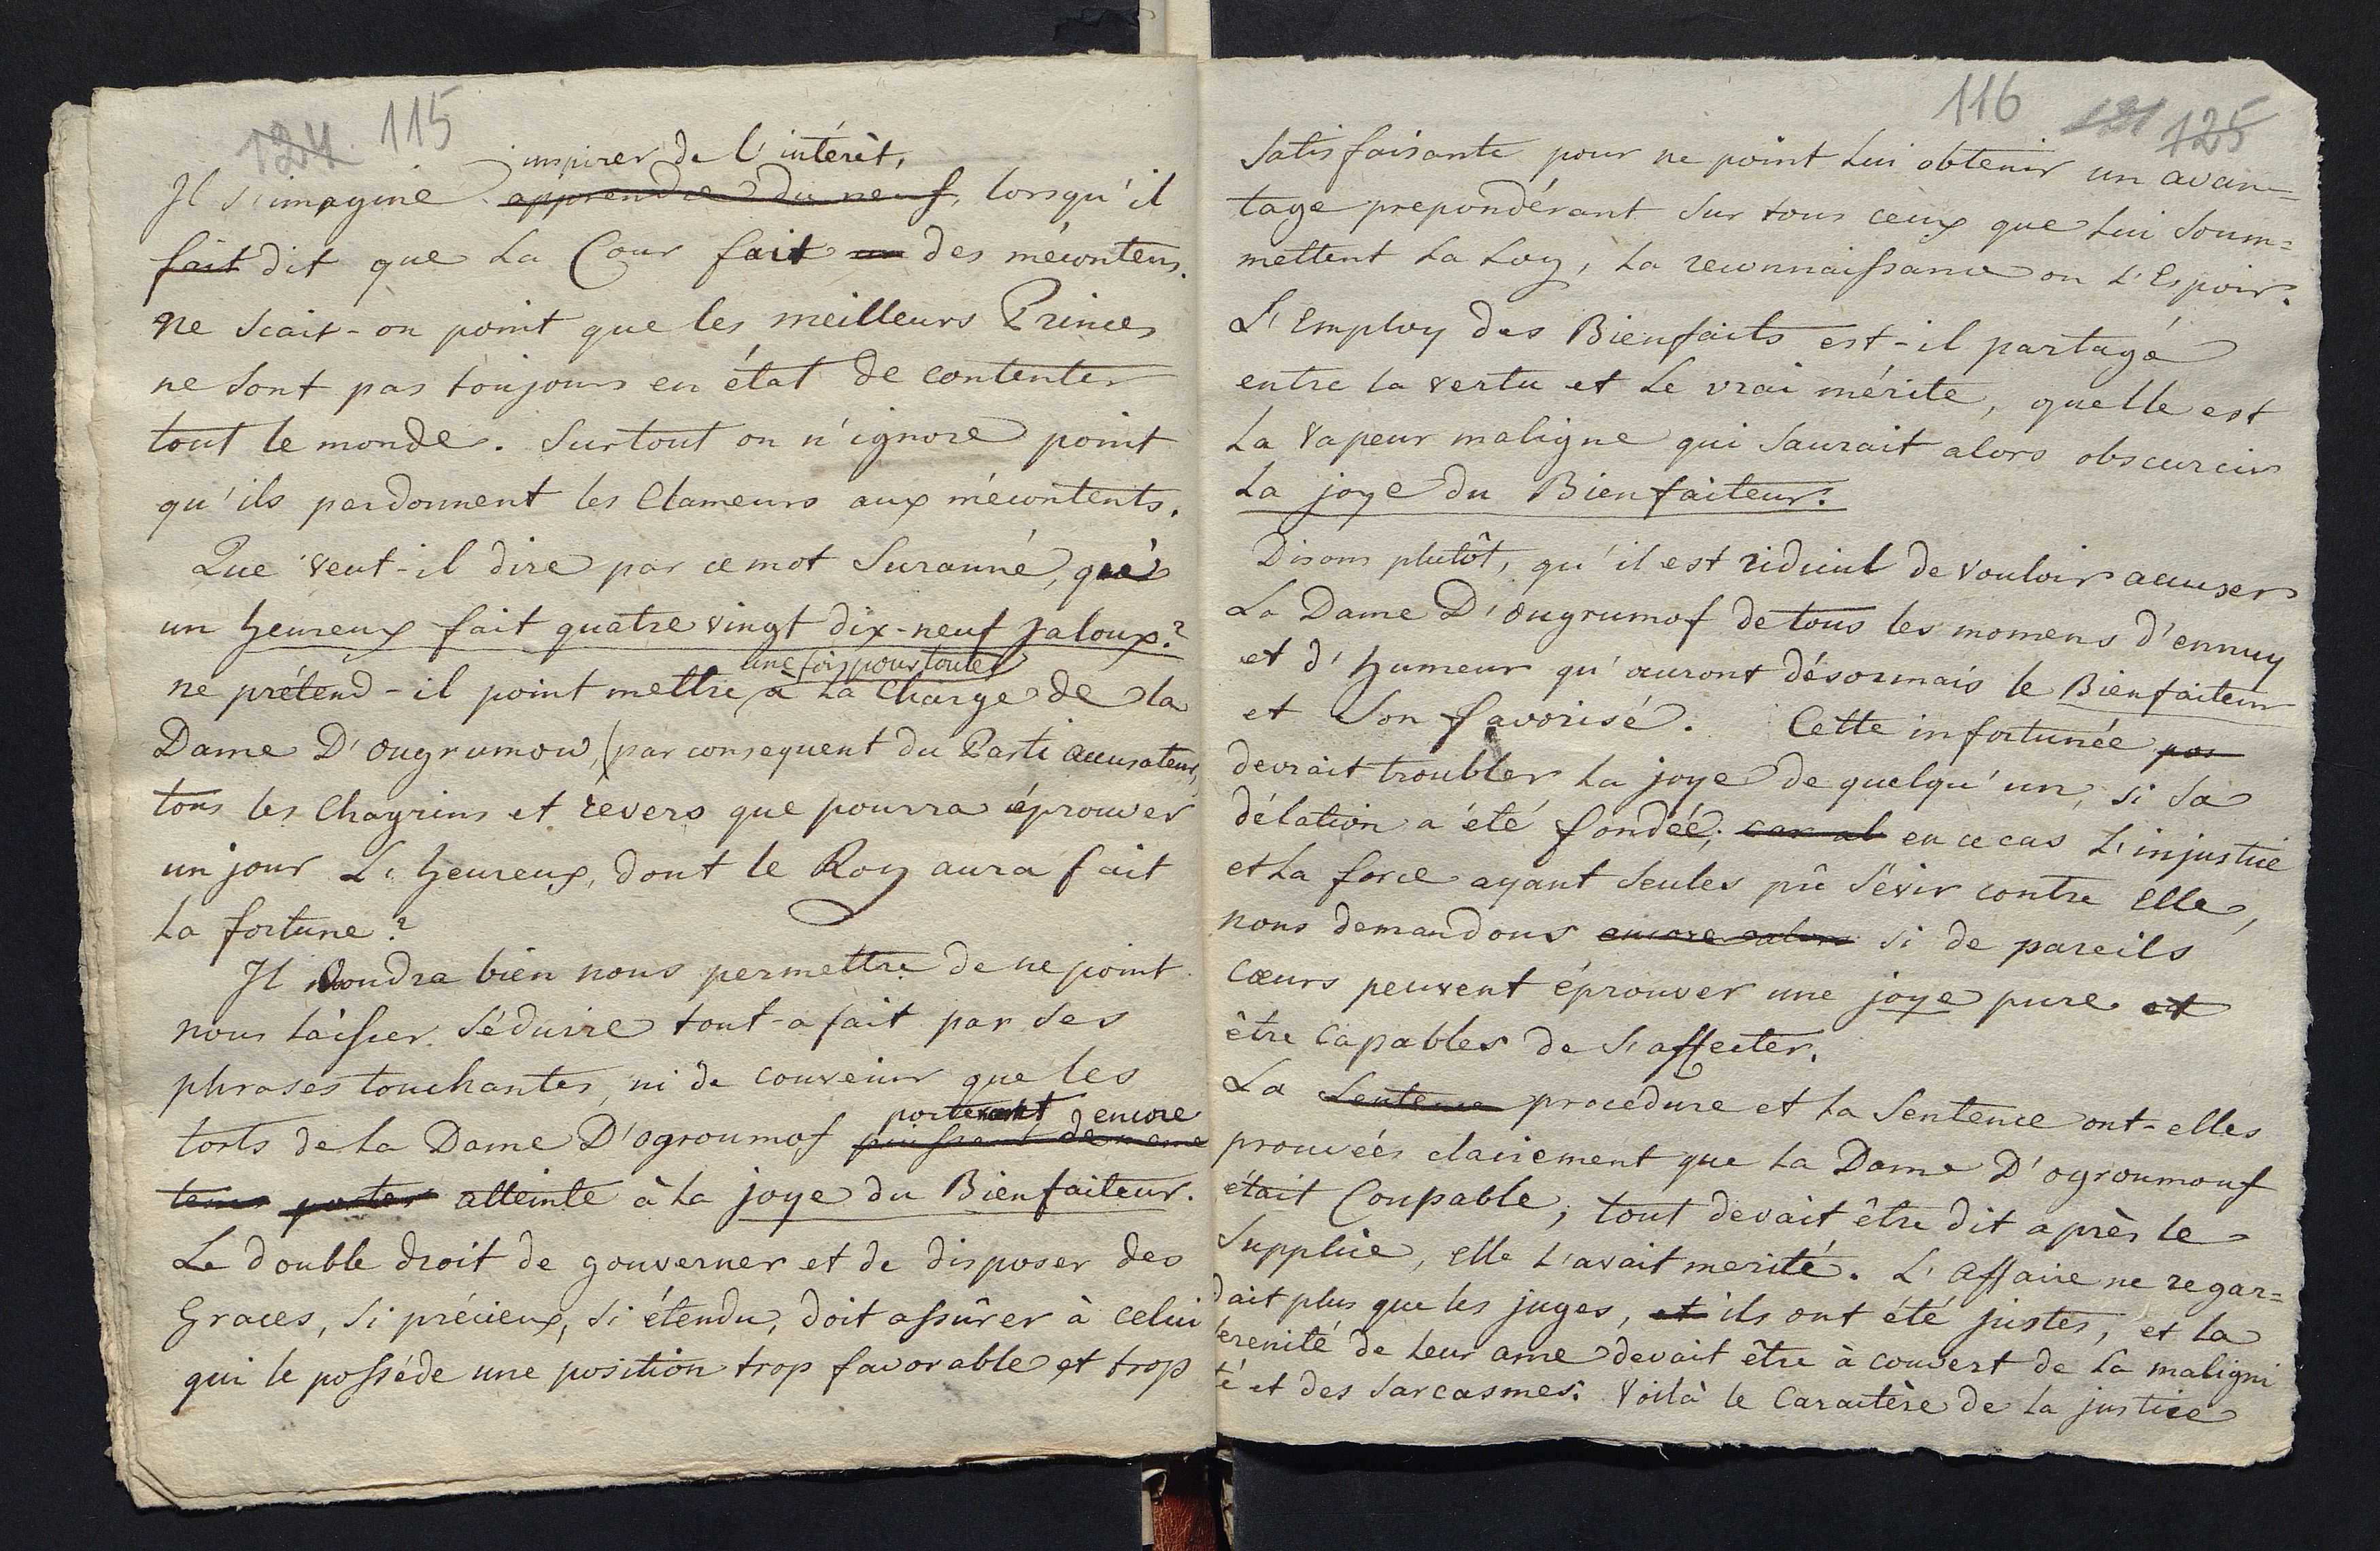 124 115
inspirer de l'intérèt,
Il s'imagine apprendre du neuf, lorsqu'il
fait dit que la Cour fait un des mécontens.
ne scait-on point que les meilleurs Princes
ne sont pas toujours en état de contenter
tout le monde. Surtout on n'ignore point
qu'ils pardonnent les Clameurs aux mécontents.
Que veut-il dire par ce mot Suranné, que
un heureux fait quatre vingt dix-neuf jaloux?
une fois pour toutes
ne prétend-il point mettre à la Charge de la
Dame D'ougrumow, (par consequent du Parti accusateur,
tous les Chagrins et revers que pourra éprouver
un jour L'heureux, dont le Roy aura fait
la fortune?
Il voudra bien nous permettre de ne point
nous laisser séduire tout-a fait par ses
phrases touchantes, ni de convenir que les
porteront encore
torts de la Dame D'ogroumof puissent de meme
tems porter atteinte à la joye du Bienfaiteur.
Le double droit de gouverner et de disposer des
Graces, si précieux, si étendu, doit assûrer à celui
qui le posséde une position trop favorable et trop
116 121 125
satisfaisante pour ne point lui obtenir un avan=
tage prepondérant sur tous ceux que lui soum=
mettent la Loy, la reconnaissance ou L'Espoir.
L'Employ des Bienfaits est-il partagé
entre la vertu et le vrai mérite, quelle est
la vapeur maligne qui saurait alors obscurcir
la joye du Bienfaiteur?
Disons plutôt, qu'il est ridicul de vouloir accuser
La Dame D'ougrumof de tous les momens d'ennuy
et d'humeur qu'auront désormais le Bienfaiteur
et son favorisé. Cette infortunée pas
devrait troubler la joye de quelqu'un, si sa
délation a été fondée; car al en ce cas L'injustice
et la force ayant seules pû sévir contre Elle,
nous demandons encore alors si de pareils
Cœurs peuvent éprouver une joye pure et
être capables de s'affecter.
La Sentence procedure et la Sentence ont-elles
prouvées clairement que la Dame D'ogroumouf
était Coupable; tout devait être dit après le
Supplice, elle l'avait merité. L'Affaire ne regar=
dait plus que les juges, et ils ont été justes, et la
serenité de leur ame devait être à couvert de la maligni
té et des Sarcasmes: Voilà le Caractère de la justice